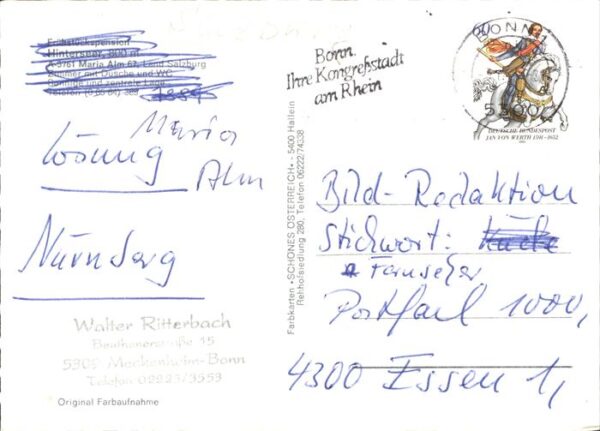 Frühstückspension
Hinterseer, 800 m
A-5761 Maria Alm 67, Land Salzburg
Zimmer mit Dusche und WC
sonnige und zentrale Lage
Telefon
Maria
Lösung
Alm
Nürnberg
Walter Ritterbach
15
5309 Meckenheim-Bonn
Telefon 02225/3553
Original Farbaufnahme
Farbkarten »SCHÖNES ÖSTERREICH« - 5400 Hallein
Rehhofsiedlung 280, Telefon 06222/74338
Bonn.
Ihre Kongreßstadt
am Rhein
60
BONN
5300
DEUTSCHE BUNDESPOST
JAN VON WERTH 1591-1652
Bild-Redaktion
Stichwort:
Fernseher
Postfach 1000,
4300 Essen 1,